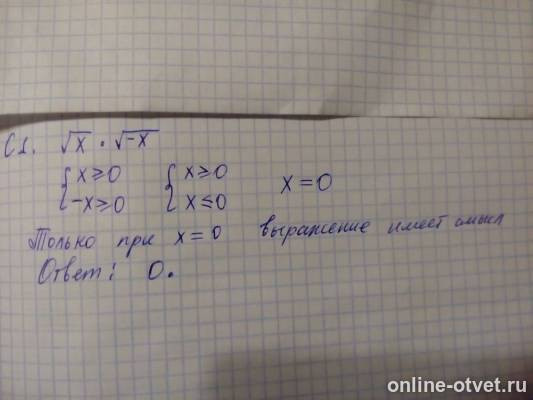 С1. √x · √-x
{ x ≥ 0 { x ≥ 0 x = 0
{ -x ≥ 0 { x ≤ 0
Только при x = 0 выражение имеет смысл
Ответ: 0.
online-otvet.ru